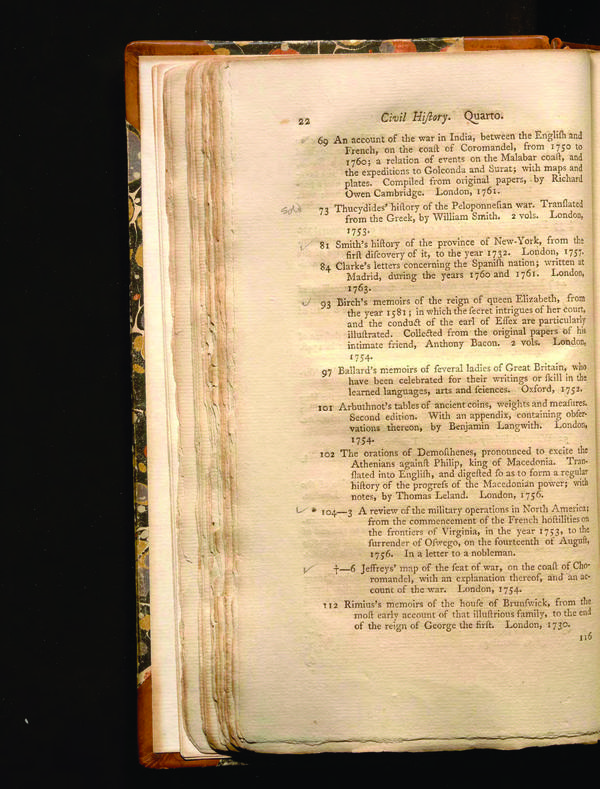 22 Civil Hiſtory. Quarto.
69 An account of the war in India, between the Engliſh and
French, on the coaſt of Coromandel, from 1750 to
1760; a relation of events on the Malabar coaſt, and
the expeditions to Golconda and Surat; with maps and
plates. Compiled from original papers, by Richard
Owen Cambridge. London, 1761.
Sold 73 Thucydides' hiſtory of the Peloponneſian war. Tranſlated
from the Greek, by William Smith. 2 vols. London,
1753.
✓ 81 Smith's hiſtory of the province of New-York, from the
firſt diſcovery of it, to the year 1732. London, 1757.
84 Clarke's letters concerning the Spaniſh nation; written at
Madrid, during the years 1760 and 1761. London,
1763.
✓ 93 Birch's memoirs of the reign of queen Elizabeth, from
the year 1581; in which the ſecret intrigues of her court,
and the conduct of the earl of Eſſex are particularly
illuſtrated. Collected from the original papers of his
intimate friend, Anthony Bacon. 2 vols. London,
1754.
97 Ballard's memoirs of ſeveral ladies of Great Britain, who
have been celebrated for their writings or ſkill in the
learned languages, arts and ſciences. Oxford, 1752.
101 Arbuthnot's tables of ancient coins, weights and meaſures.
Second edition. With an appendix, containing obſer-
vations thereon, by Benjamin Langwith. London,
1754.
102 The orations of Demoſthenes, pronounced to excite the
Athenians againſt Philip, king of Macedonia. Tran-
ſlated into Engliſh, and digeſted ſo as to form a regular
hiſtory of the progreſs of the Macedonian power; with
notes, by Thomas Leland. London, 1756.
✓ * 104—3 A review of the military operations in North America;
from the commencement of the French hoſtilities on
the frontiers of Virginia, in the year 1753, to the
ſurrender of Oſwego, on the fourteenth of Auguſt,
1756. In a letter to a nobleman.
✓ †—6 Jeffreys' map of the ſeat of war, on the coaſt of Cho-
romandel, with an explanation thereof, and an ac-
count of the war. London, 1754.
112 Rimius's memoirs of the houſe of Brunſwick, from the
moſt early account of that illuſtrious family, to the end
of the reign of George the firſt. London, 1730.
116